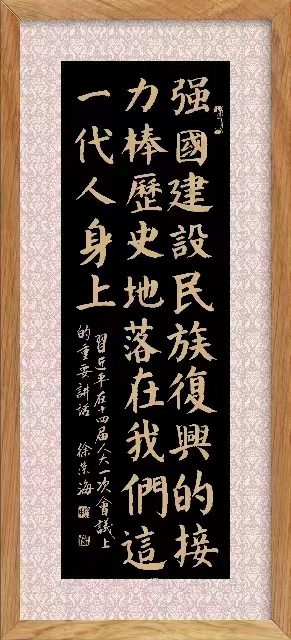 强國建設民族復興的接
力棒歷史地落在我們這
一代人身上
習近平在十四届人大一次會議上
的重要講話 徐榮海